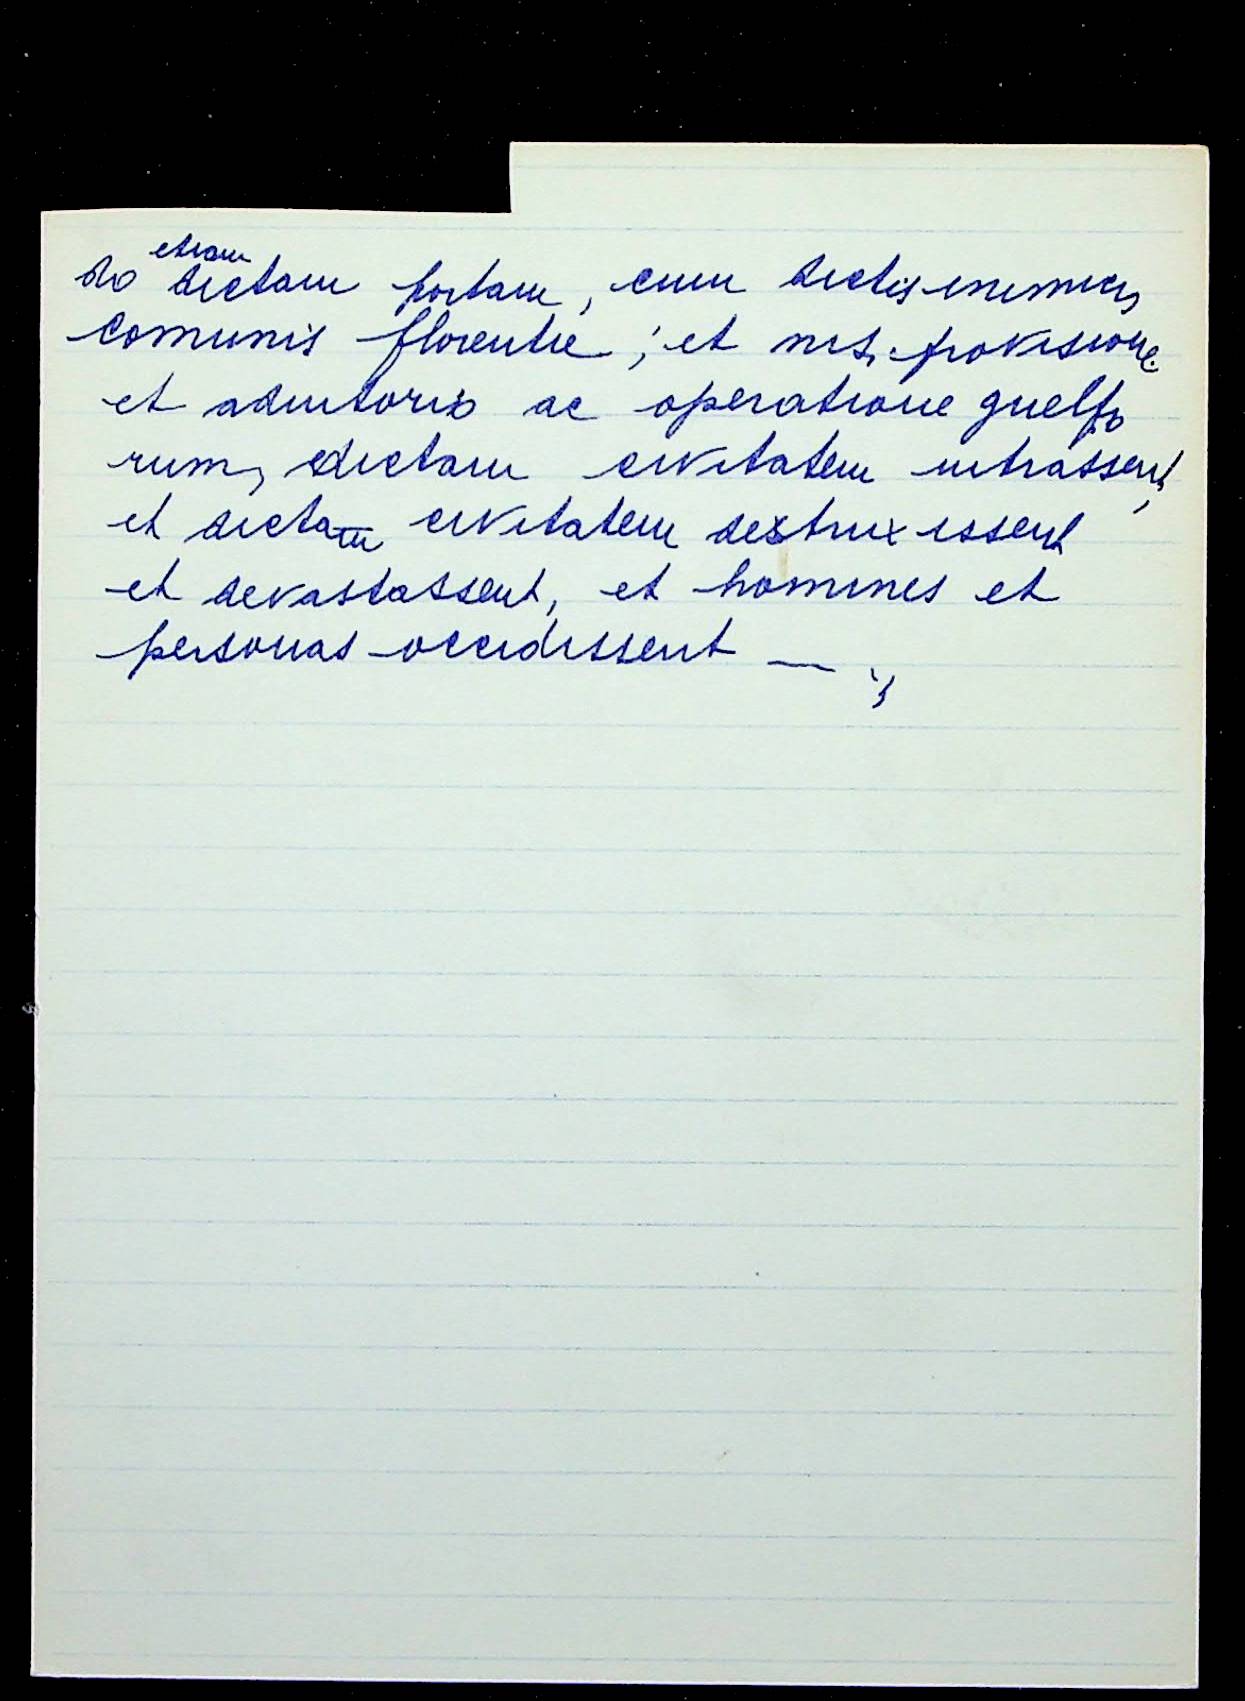 etiam
do dictam portam, cum dictis inimicis
comunis florentie; et nisi provisione
et adiutorio ac operatione guelfo
rum, dictam civitatem intrassent,
et dictam civitatem destruxissent
et devastassent, et homines et
personas occidissent — ;